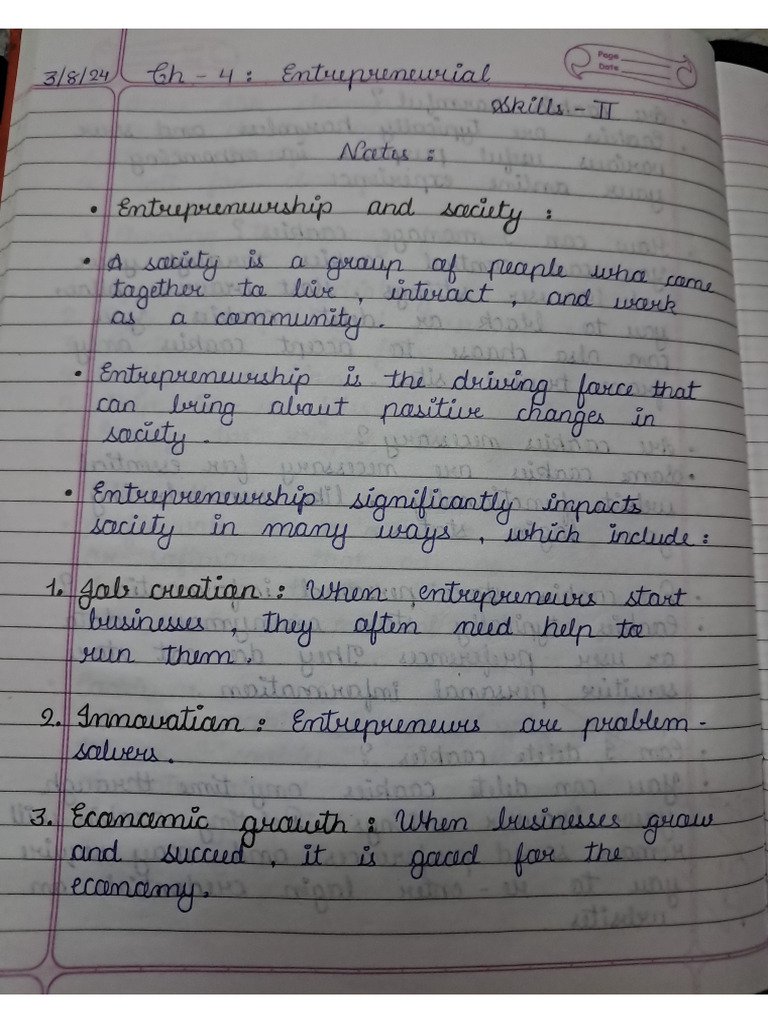 Page
Date
3/8/24 Ch - 4 : Entrepreneurial
Skills - II
Notes :
• Entrepreneurship and society :
• A society is a group of people who come
together to live , interact , and work
as a community.
• Entrepreneurship is the driving force that
can bring about positive changes in
society .
• Entrepreneurship significantly impacts
society in many ways , which include :
1. Job creation : When entrepreneurs start
businesses , they often need help to
run them .
2. Innovation : Entrepreneurs are problem -
solvers .
3. Economic growth : When businesses grow
and succeed , it is good for the
economy .